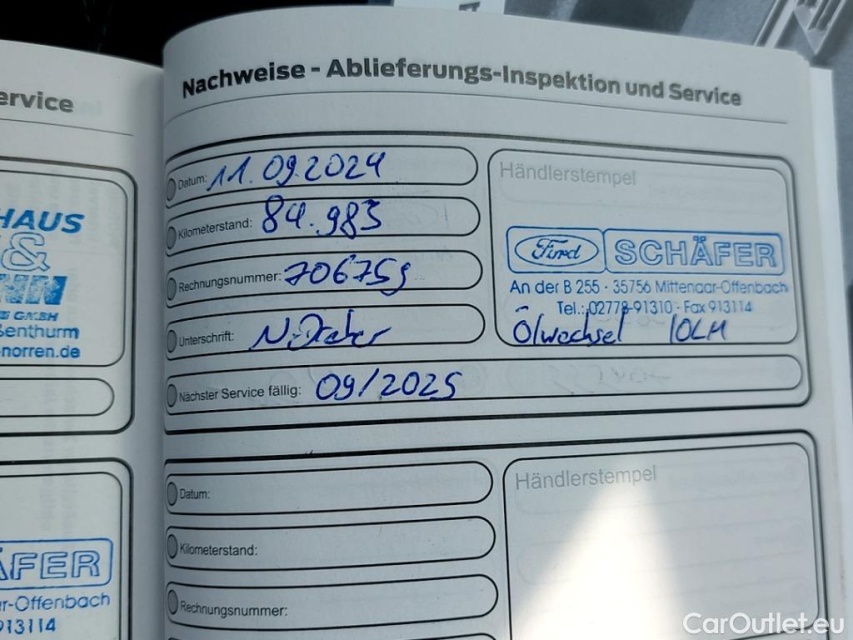 ervice
HAUS
&
NN
GMBH
enthurm
-norren.de
ÄFER
r-Offenbach
913114
Nachweise - Ablieferungs-Inspektion und Service
Datum: 11.09.2024
Kilometerstand: 84.983
Rechnungsnummer: 706759
Unterschrift:
Nächster Service fällig: 09/2025
Händlerstempel
Ford SCHÄFER
An der B 255 - 35756 Mittenaar-Offenbach
Tel.: 02778-91310 - Fax 913114
Ölwechsel
Datum:
Kilometerstand:
Rechnungsnummer:
Händlerstempel
CarOutlet.eu